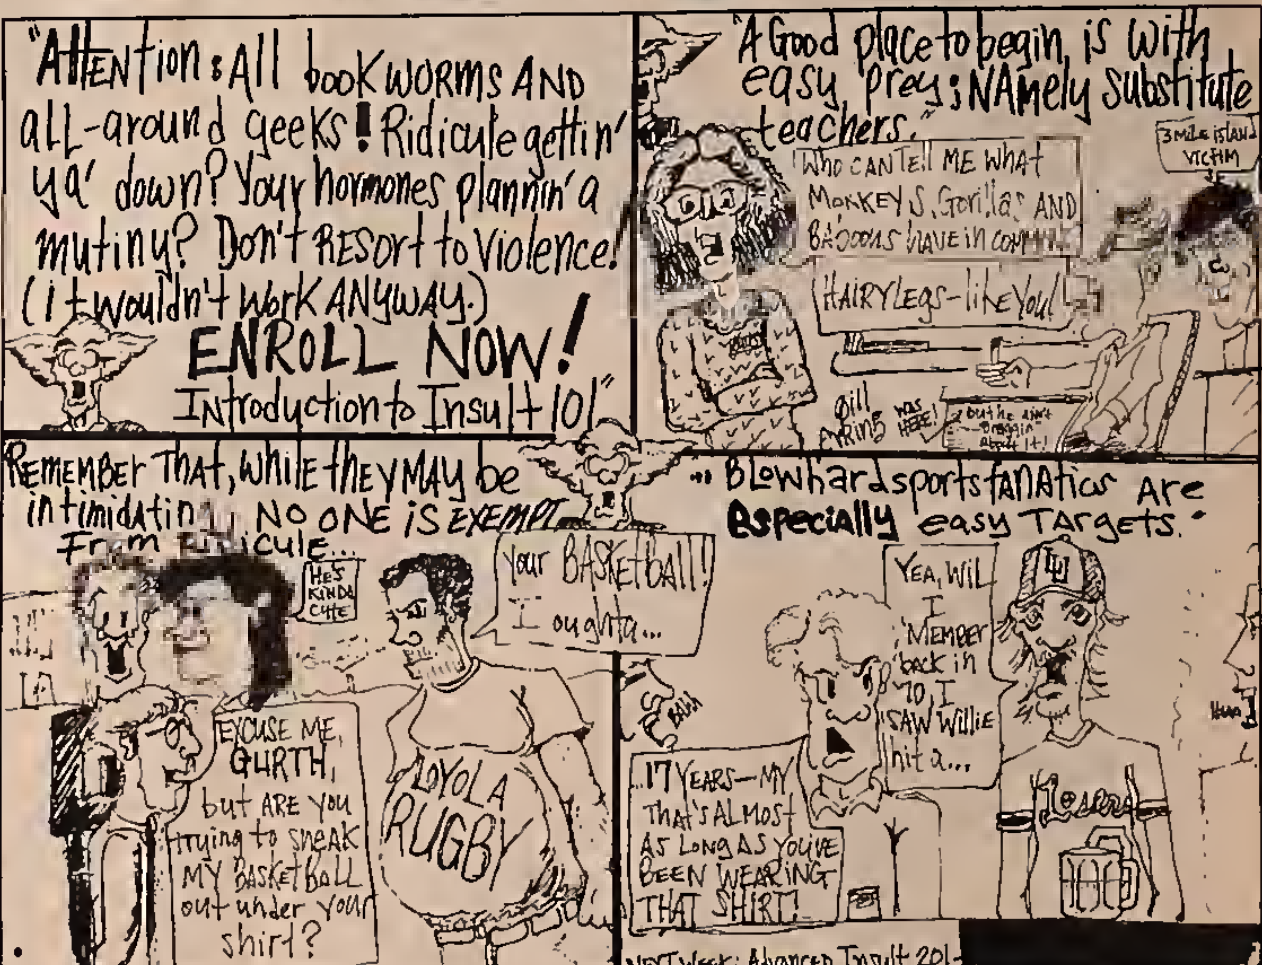 "Attention: All bookworms AND
all-around geeks! Ridicule gettin'
ya' down? Your hormones plannin' a
mutiny? Don't RESORT to Violence!
(it wouldn't work ANYWAY.)
ENROLL NOW!
Introduction to Insult 101"
"A Good place to begin, is with
easy prey; NAmely substitute
teachers."
3 Mile island
victim
Who can tell me what
Monkeys, Gorillas and
Baboons have in common
Hairy legs-like you!
Bill
was
here!
but he ain't
braggin'
about it!
Remember that, while they may be
intimidating NO ONE is EXEMPT
From Ridicule...
He's
kinda
cute
Your BASKETball!
I oughtta...
Excuse me,
GURTH,
but ARE you
trying to sneak
MY BASKETBALL
out under your
shirt?
LOYOLA
RUGBY
... Blowhard sports fanatics are
Especially easy targets."
Yea, Wil
I
'member
back in
'70, I
saw Willie
hit a...
LU
BAM
..17 years-my
that's almost
as long as you've
been wearing
that shirt!
Losers
Next week: Advanced Insult 201-